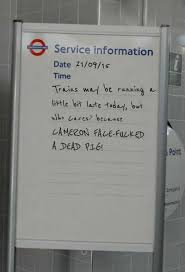 Service information
Date 21/09/15
Time
Trains may be running a
little bit late today, but
who cares? because
CAMERON FACE-FUCKED
A DEAD PIG!
Point